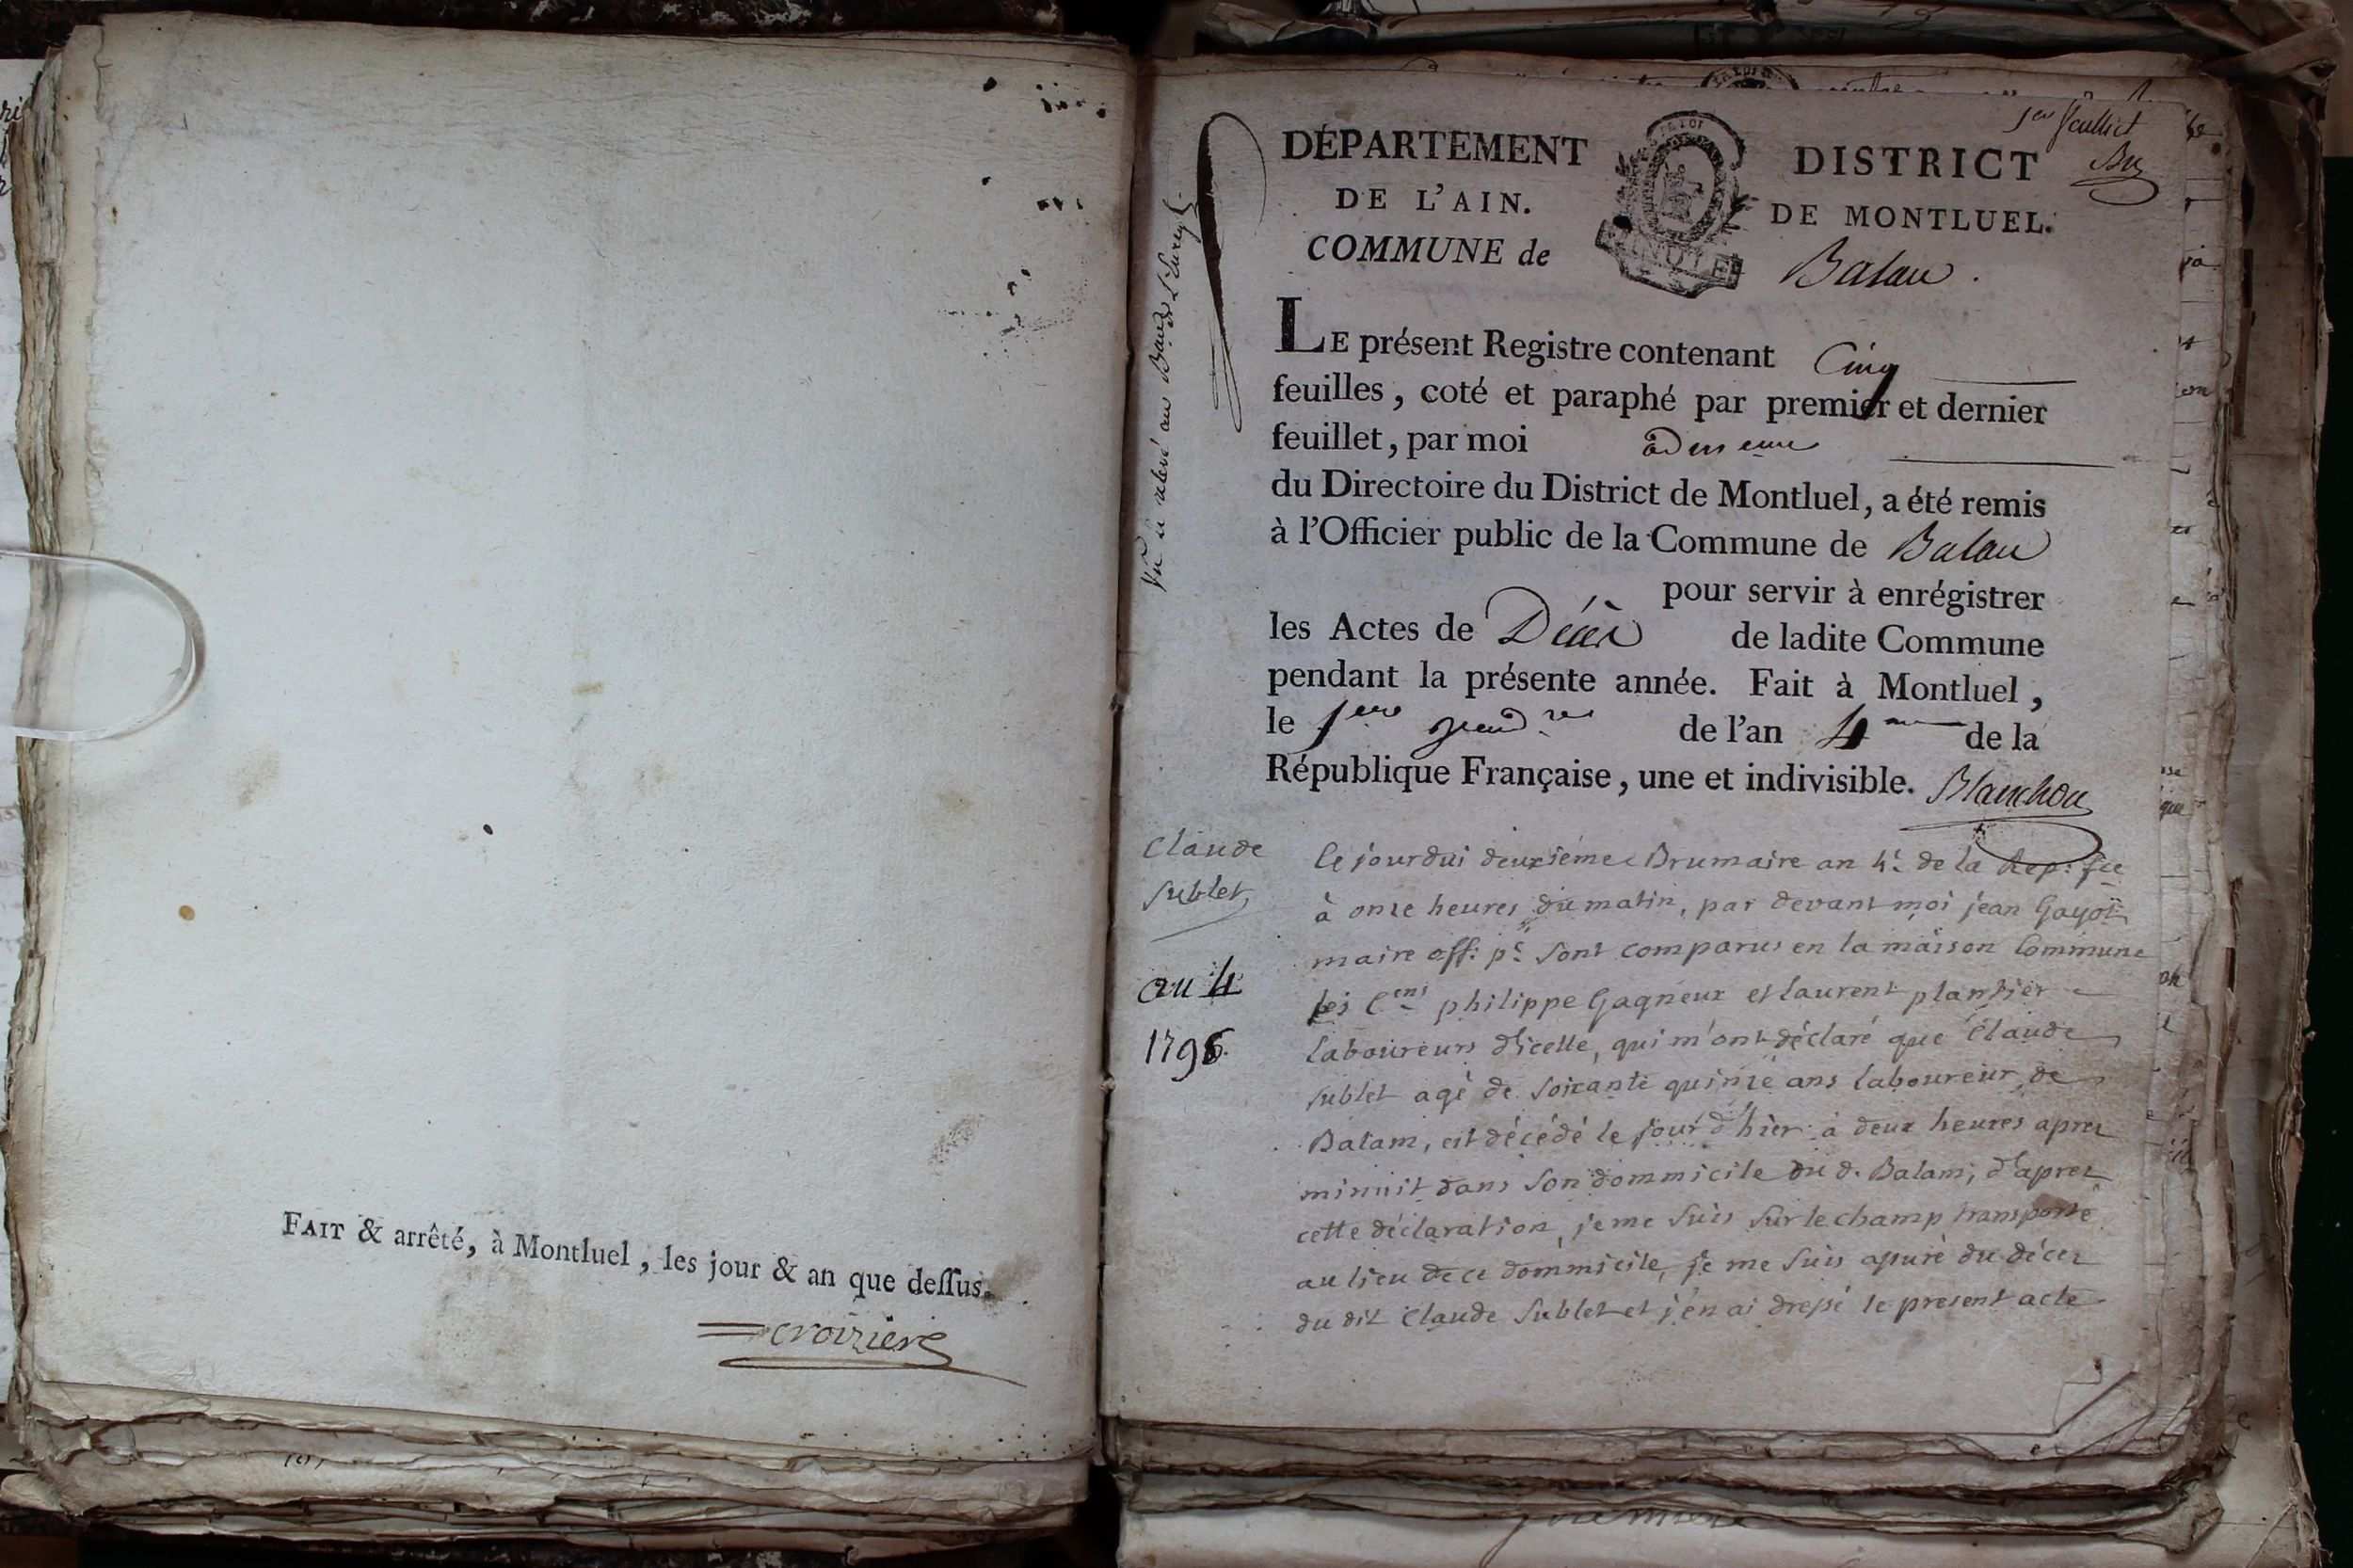 FAIT & arrêté, à Montluel, les jour & an que dessus.
croiziers
1er feuillet
DÉPARTEMENT
DE L'AIN.
COMMUNE de
DISTRICT
DE MONTLUEL.
Balan.
LE présent Registre contenant Cinq
feuilles, coté et paraphé par premier et dernier
feuillet, par moi
du Directoire du District de Montluel, a été remis
à l'Officier public de la Commune de Balan
pour servir à enrégistrer
les Actes de Décès de ladite Commune
pendant la présente année. Fait à Montluel,
le 1er vend.re de l'an 4me de la
République Française, une et indivisible. Blanchon
Claude
Sublet
an 4
1796
Ce jourdui deuxième Brumaire an 4e. de la Rep: fse
à onze heures du matin, par devant moi jean Gayot
maire off: pc sont comparus en la maison Commune
les Cens philippe Gagneux et laurent plantier
laboureurs d'icelle, qui m'ont déclaré que Claude
Sublet agé de soixante quinze ans laboureur de
Balam, est décédé le jour d'hier à deux heures aprez
minuit dans son dommicile du d. Balam, d'aprez
cette déclaration, je me suis sur le champ transporté
au lieu de ce dommicile, je me suis assuré du décez
du dit Claude Sublet et j'en ai dressé le present acte